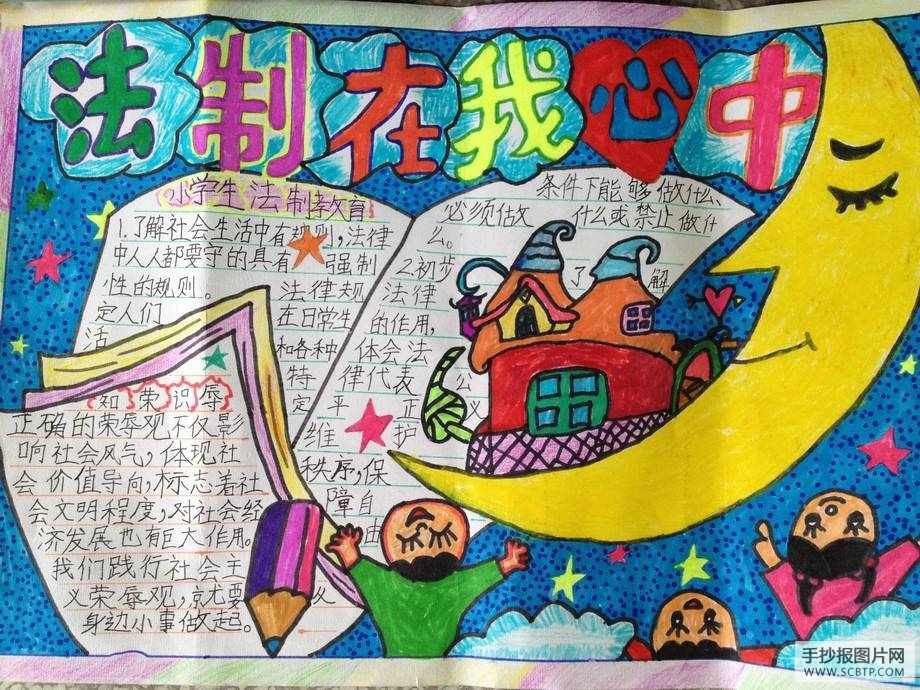 法制在我心中
小学生法制教育
1.了解社会生活中有规则,法律
中人人都要守的具有 强制
性的规则。 法律规
定人们 在日常生
活 和各种
特
定
条件下能够做什么、
必须做 什么或禁止做什
么。
2.初步 了 解
法律
的作用,
体会法
律代表 公
平 正 义
维 护
秩序,保
障自
由
知荣识辱
正确的荣辱观不仅影
响社会风气,体现社
会价值导向,标志着社
会文明程度,对社会经
济发展也有巨大作用。
我们践行社会主
义荣辱观,就要 从
身边小事做起。
手抄报图片网
WWW.SCBTP.COM